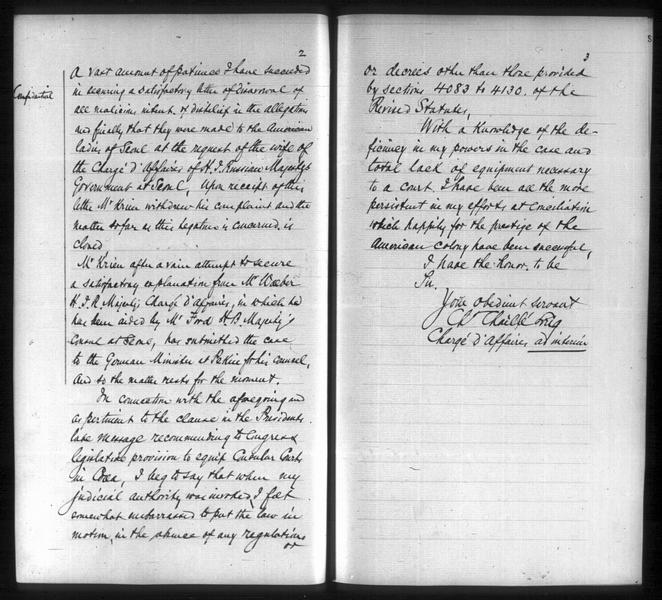 2
Confidential
a vast amount of patience I have succeeded
in securing a satisfactory letter of disavowal of
all malicious intent, or disbelief in the allegations
and finally that they were made to the American
ladies of Seoul at the request of the wife of
the Chargé d'Affaires of H. I. Russian Majesty's
Government at Seoul, Upon receipt of this
letter Mr Krien withdrew his complaint and the
matter so far as this Legation is concerned, is
closed
Mr Krien after a vain attempt to secure
a satisfactory explanation from Mr Waeber
H. I. R. Majesty's Chargé d'Affaires, in which he
has been aided by Mr Ford H. B. Majesty's
Consul at Seoul, has submitted the case
to the German Minister at Pekin for his counsel,
and so the matter rests for the moment.
In connection with the aforegoing and
as pertinent to the clause in the President's
late message recommending to Congress
legislative provision to equip Consular Courts
in Corea, I beg to say that when my
judicial authority was invoked, I felt
somewhat embarrassed to put the law in
motion, in the absence of any regulations
or
3
or decrees other than those provided
by sections 4083 to 4130. of the
Revised Statutes,
With a knowledge of the de-
ficiency in my powers in the case and
total lack of equipment necessary
to a court, I have been all the more
persistent in my efforts at conciliation
which happily for the prestige of the
American colony have been successful,
I have the honor, to be
Sir.
Your obedient servant
Ch Chaillé Long
Chargé d'Affaires ad interim